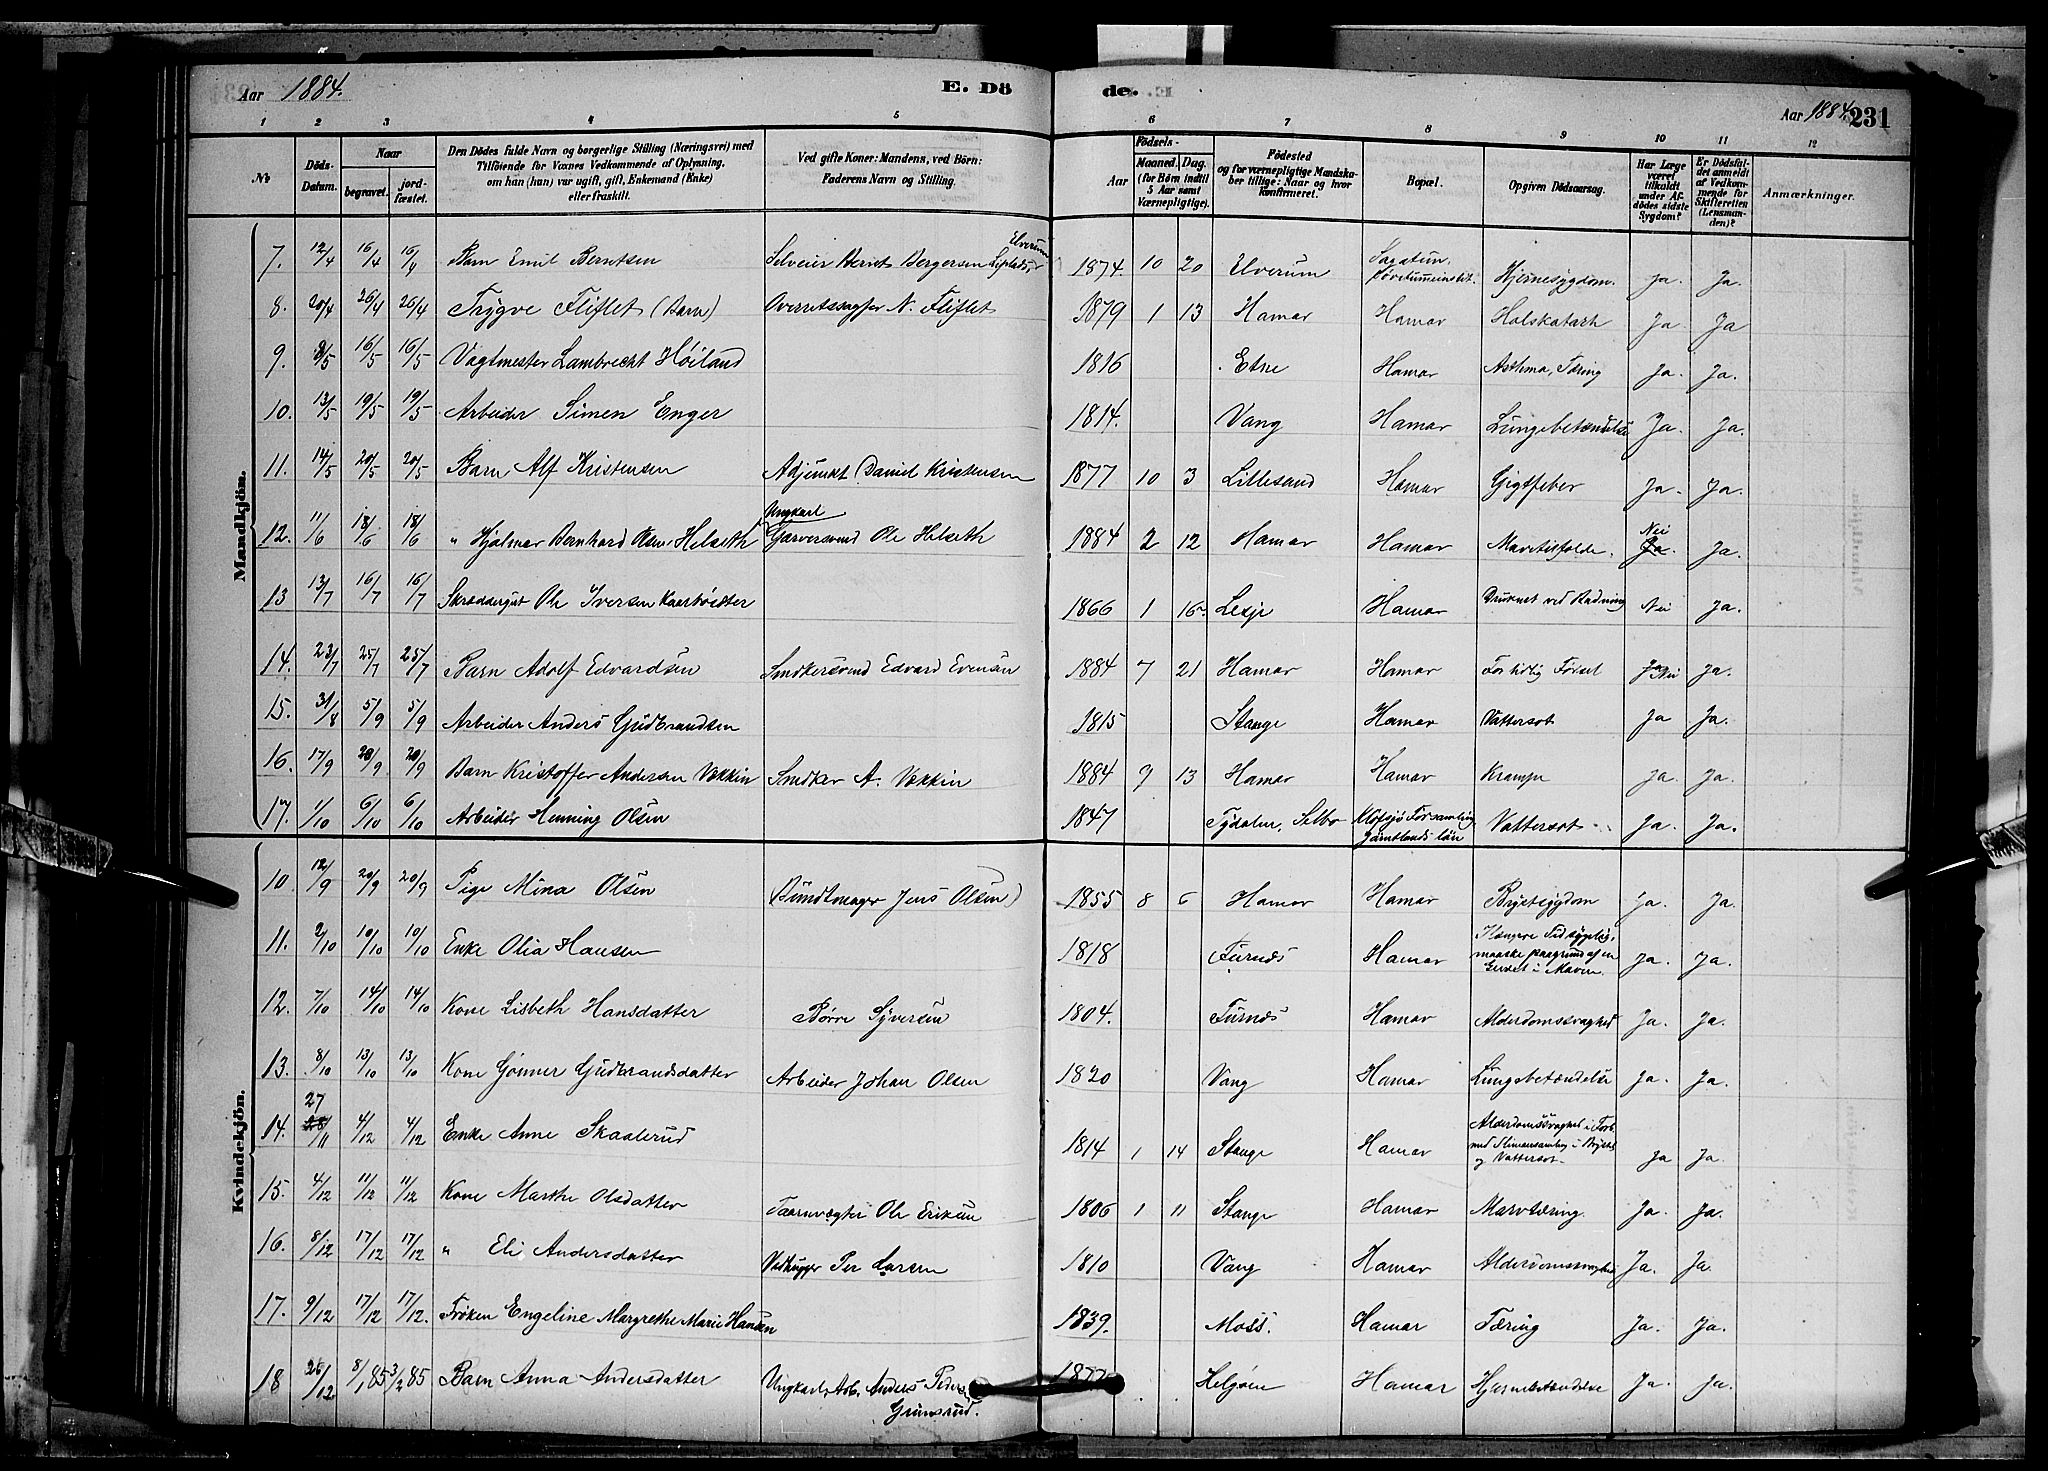 Aar 1884. E. Dö
de. Aar 1884. 231
1 2 3 4 5 6 7 8 9 10 11 12
№ Döds-Datum. Naar begravet. jordfæstet. Den Dödes fulde Navn og borgerlige Stilling (Næringsvei) med Tilföiende for Voxnes Vedkommende af Oplysning, om han (hun) var ugift, gift, Enkemand (Enke) eller fraskilt. Ved gifte Koner: Mandens, ved Börn: Faderens Navn og Stilling. Födsels- Aar Maaned. Dag. (for Börn indtil 5 Aar samt Værnepligtige). Födested og for værnepligtige Mandskaber tillige: Naar og hvor konfirmeret. Bopæl. Opgiven Dödsaarsag. Har Læge været tilkaldt under Afdödes sidste Sygdom? Er Dödsfaldet anmeldt af Vedkommende for Skifteretten (Lensmanden)? Anmærkninger.
Mandkjön.
7. 12/4 16/4 16/4 Barn Emil Berntsen Selveier Bernt Bergersen Elverum 1874. 10 20 Elverum Hjernesygdom. Ja. Ja.
8. 20/4 26/4 26/4 Trygve Fliflet (Barn) Overretssagfør N. Fliflet 1879 1 13 Hamar Hamar Halskatarh Ja. Ja
9. 8/5 16/5 16/5 Vagtmester Lambrecht Høiland 1816 Etne Hamar Asthma, Tæring Ja. Ja.
10. 13/5 19/5 19/5 Arbeider Simen Enger 1814. Vang Hamar Lungebetændelse Ja. Ja.
11. 14/5 20/5 20/5 Barn Alf Kristensen Adjunkt Daniel Kristensen 1877 10 3 Lillesand Hamar Gigtfeber Ja. Ja.
12. 11/6 18/6 18/6 " Hjalmar Bernhard Olsen Helseth Ungkarl Garversvend Ole Helseth 1884 2 12 Hamar Hamar Nei Ja. Ja.
13 13/7 16/7 16/7 Skræddergut Ole Iversen 1866 1 16 Lesje Hamar Druknet ved Badning Nei Ja.
14. 23/7 25/7 25/7 Barn Adolf Edvardsen Snedkersvend Edvard Evensen 1884 7 21 Hamar Hamar For tidlig Fødsel Ja Nei Ja.
15. 31/8 5/9 5/9 Arbeider Anders Gudbrandsen 1815 Stange Hamar Vattersot Ja Ja.
16. 17/9 20/9 20/9 Barn Kristoffer Andersen Vekkin Snedker A. Vekkin 1884 9 13 Hamar Hamar Krampe Ja. Ja.
17. 1/10 6/10 6/10 Arbeider Henning Olsen 1847 Tydalen, Selbo Klöfsjö Forsamling Jämtlands län Vattersot Ja. Ja.
Kvindekjön.
10 12/9 20/9 20/9 Pige Mina Olsen (Bundtmager Jens Olsen) 1855 8 6 Hamar Hamar Brystsygdom Ja. Ja.
11. 2/10 10/10 10/10 Enke Olia Hansen 1818 Furnes Hamar Længere Tid sygelig, maaske paagrund af en i Maven. Ja. Ja.
12. 7/10 14/10 14/10 Kone Lisbeth Hansdatter Børre Syversen 1804. Furnes Hamar Alderdomssvaghed Ja. Ja.
13. 8/10 13/10 13/10 Kone Gønner Gudbrandsdatter Arbeider Johan Olsen 1820 Vang Hamar Lungebetændelse Ja. Ja.
14. 27/11 4/12 4/12 Enke Anne Skaalerud 1814 1 14 Stange Hamar Alderdomssvaghed i Forb. med Slimansamling i Brystet og Vattersot. Ja Ja.
15. 4/12 11/12 11/12 Kone Marthe Olsdatter Taarnvægter Ole Eriksen 1806 1 11 Stange Hamar Marvtæring. Ja. Ja.
16. 8/12 17/12 17/12 " Eli Andersdatter Vedhugger Per Larsen 1810 Vang Hamar Alderdomssvaghed Ja. Ja.
17. 9/12 17/12 17/12. Frøken Engeline Margrethe Marie Hansen 1839. Moss. Hamar Tæring Ja. Ja.
18 26/12 8/1 85 3/2 85 Barn Anna Andersdatter Ungkarl, Arb. Anders Peders. Grunsrud. Helgøen Hamar Hjernebetændelse Ja. Ja.